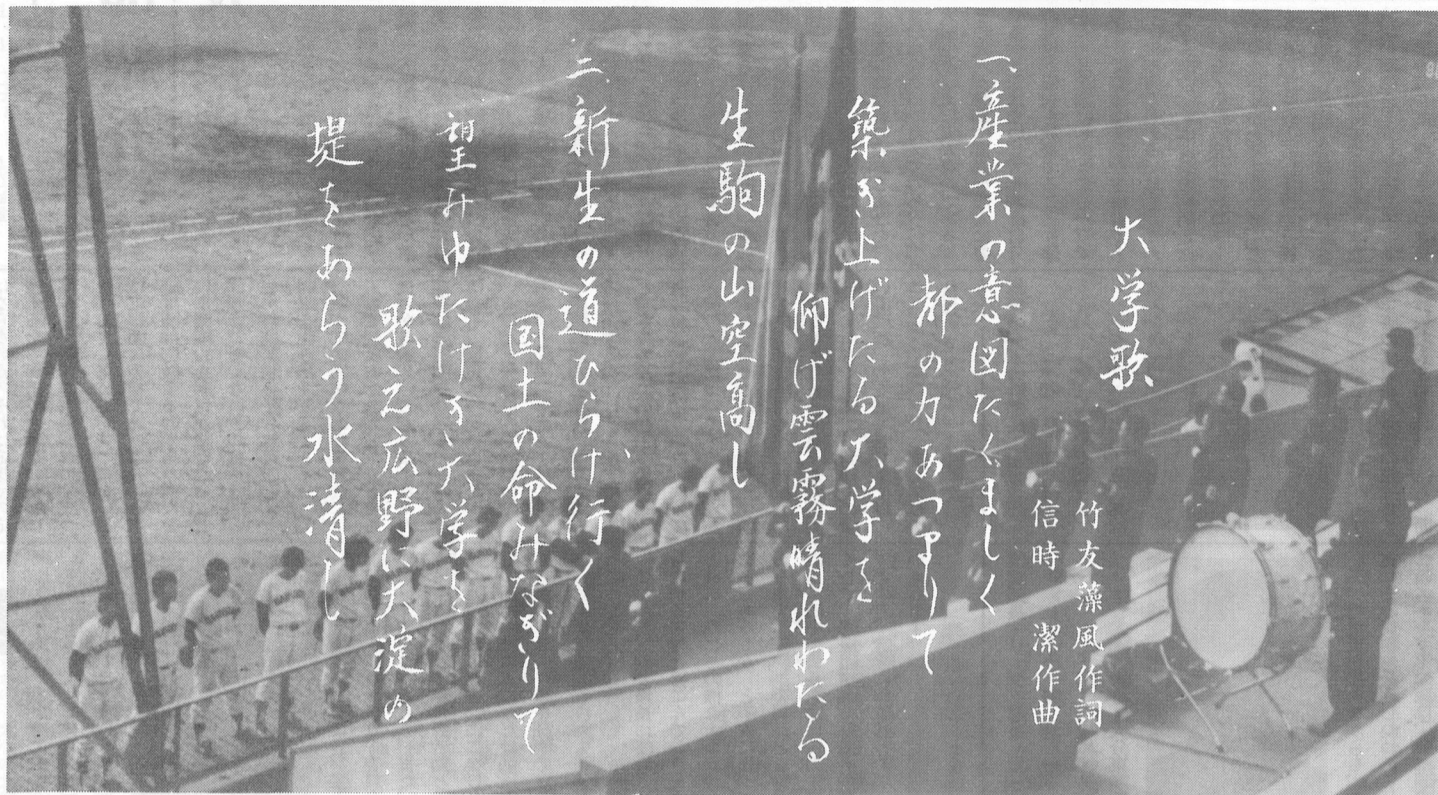 大学歌
竹友藻風作詞
信時　潔作曲
一、産業の意図たくましく
都の力あつまりて
築き上げたる大学を
仰げ雲霧晴れわたる
生駒の山空高し
二、新生の道ひらけ行く
国土の命みなぎりて
望みゆたけき大学を
歌え広野に大淀の
堤をあらう水清し